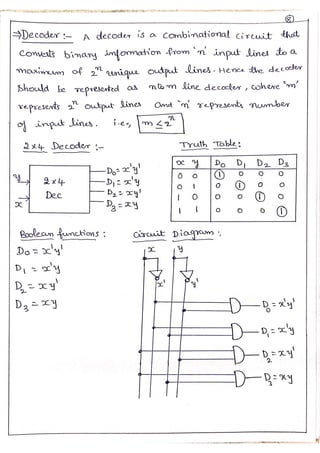 ⑧
⇒ Decoder :- A decoder is a Combinational Circuit that
Converts binary information from 'n' input lines to a
maximum of 2ⁿ unique output lines. Hence the decoder
Should be represented as n to m line decoder, where 'm'
represents 2ⁿ output lines and 'n' represents number
of input lines. i.e., m ≤ 2ⁿ
2x4 Decoder :-
y
x
2x4
Dec
D₀ = x'y'
D₁ = x'y
D₂ = xy'
D₃ = xy
Truth Table:
x y D₀ D₁ D₂ D₃
0 0 1 0 0 0
0 1 0 1 0 0
1 0 0 0 1 0
1 1 0 0 0 1
Boolean functions :
D₀ = x'y'
D₁ = x'y
D₂ = xy'
D₃ = xy
Circuit Diagram :
x y
x' y'
D₀ = x'y'
D₁ = x'y
D₂ = xy'
D₃ = xy